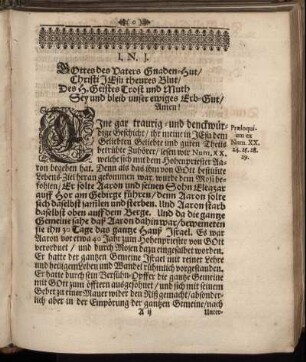 ( o )
I. N. J.
GOttes des Vaters Gnaden-Hut/
Christi JEsu theures Blut/
Des H. Geistes Trost und Muth
Sey und bleib unser ewiges Erb-Gut/
Amen!
Eine gar traurig- und denckwür-
dige Geschicht/ ihr meine in JEsu dem
Geliebten Geliebte und guten Theils
betrübte Zuhörer/ lesen wir Num. XX.
welche sich mit dem Hohenpriester Aa-
ron begeben hat. Denn als das ihm von GOtt bestimte
Lebens-Ziel heran gekommen war, wurde dem Mosi
befohlen/ Er solte Aaron und seinen Sohn Eleazar
auff Hor am Gebirge führen/ denn Aaron solte
sich daselbst samlen und sterben. Und Aaron starb
daselbst oben auff dem Berge. Und da die gantze
Gemeine sahe daß Aaron dahin war/ beweineten sie
ihn 30 Tage das gantze Hauß Israel. Es war
Aaron vor etwa 40 Jahr zum Hohenpriester von GOtt
verordnet / und durch Mosen darzu eingesalbet worden.
Er hatte der gantzen Gemeine Israel mit reiner Lehre
und heiligem Leben und Wandel rühmlich vorgestanden.
Er hatte durch sein Versühn-Opffer die gantze Gemeine
mit GOtt zum öfftern ausgesöhnet / und sich mit seinem
Gebet zu einer Mauer wider den Riß gemacht/ absonder-
lich aber in der Empörung der gantzen Gemeine/ nach
A ij
Præloqui-
um ex
Num. XX.